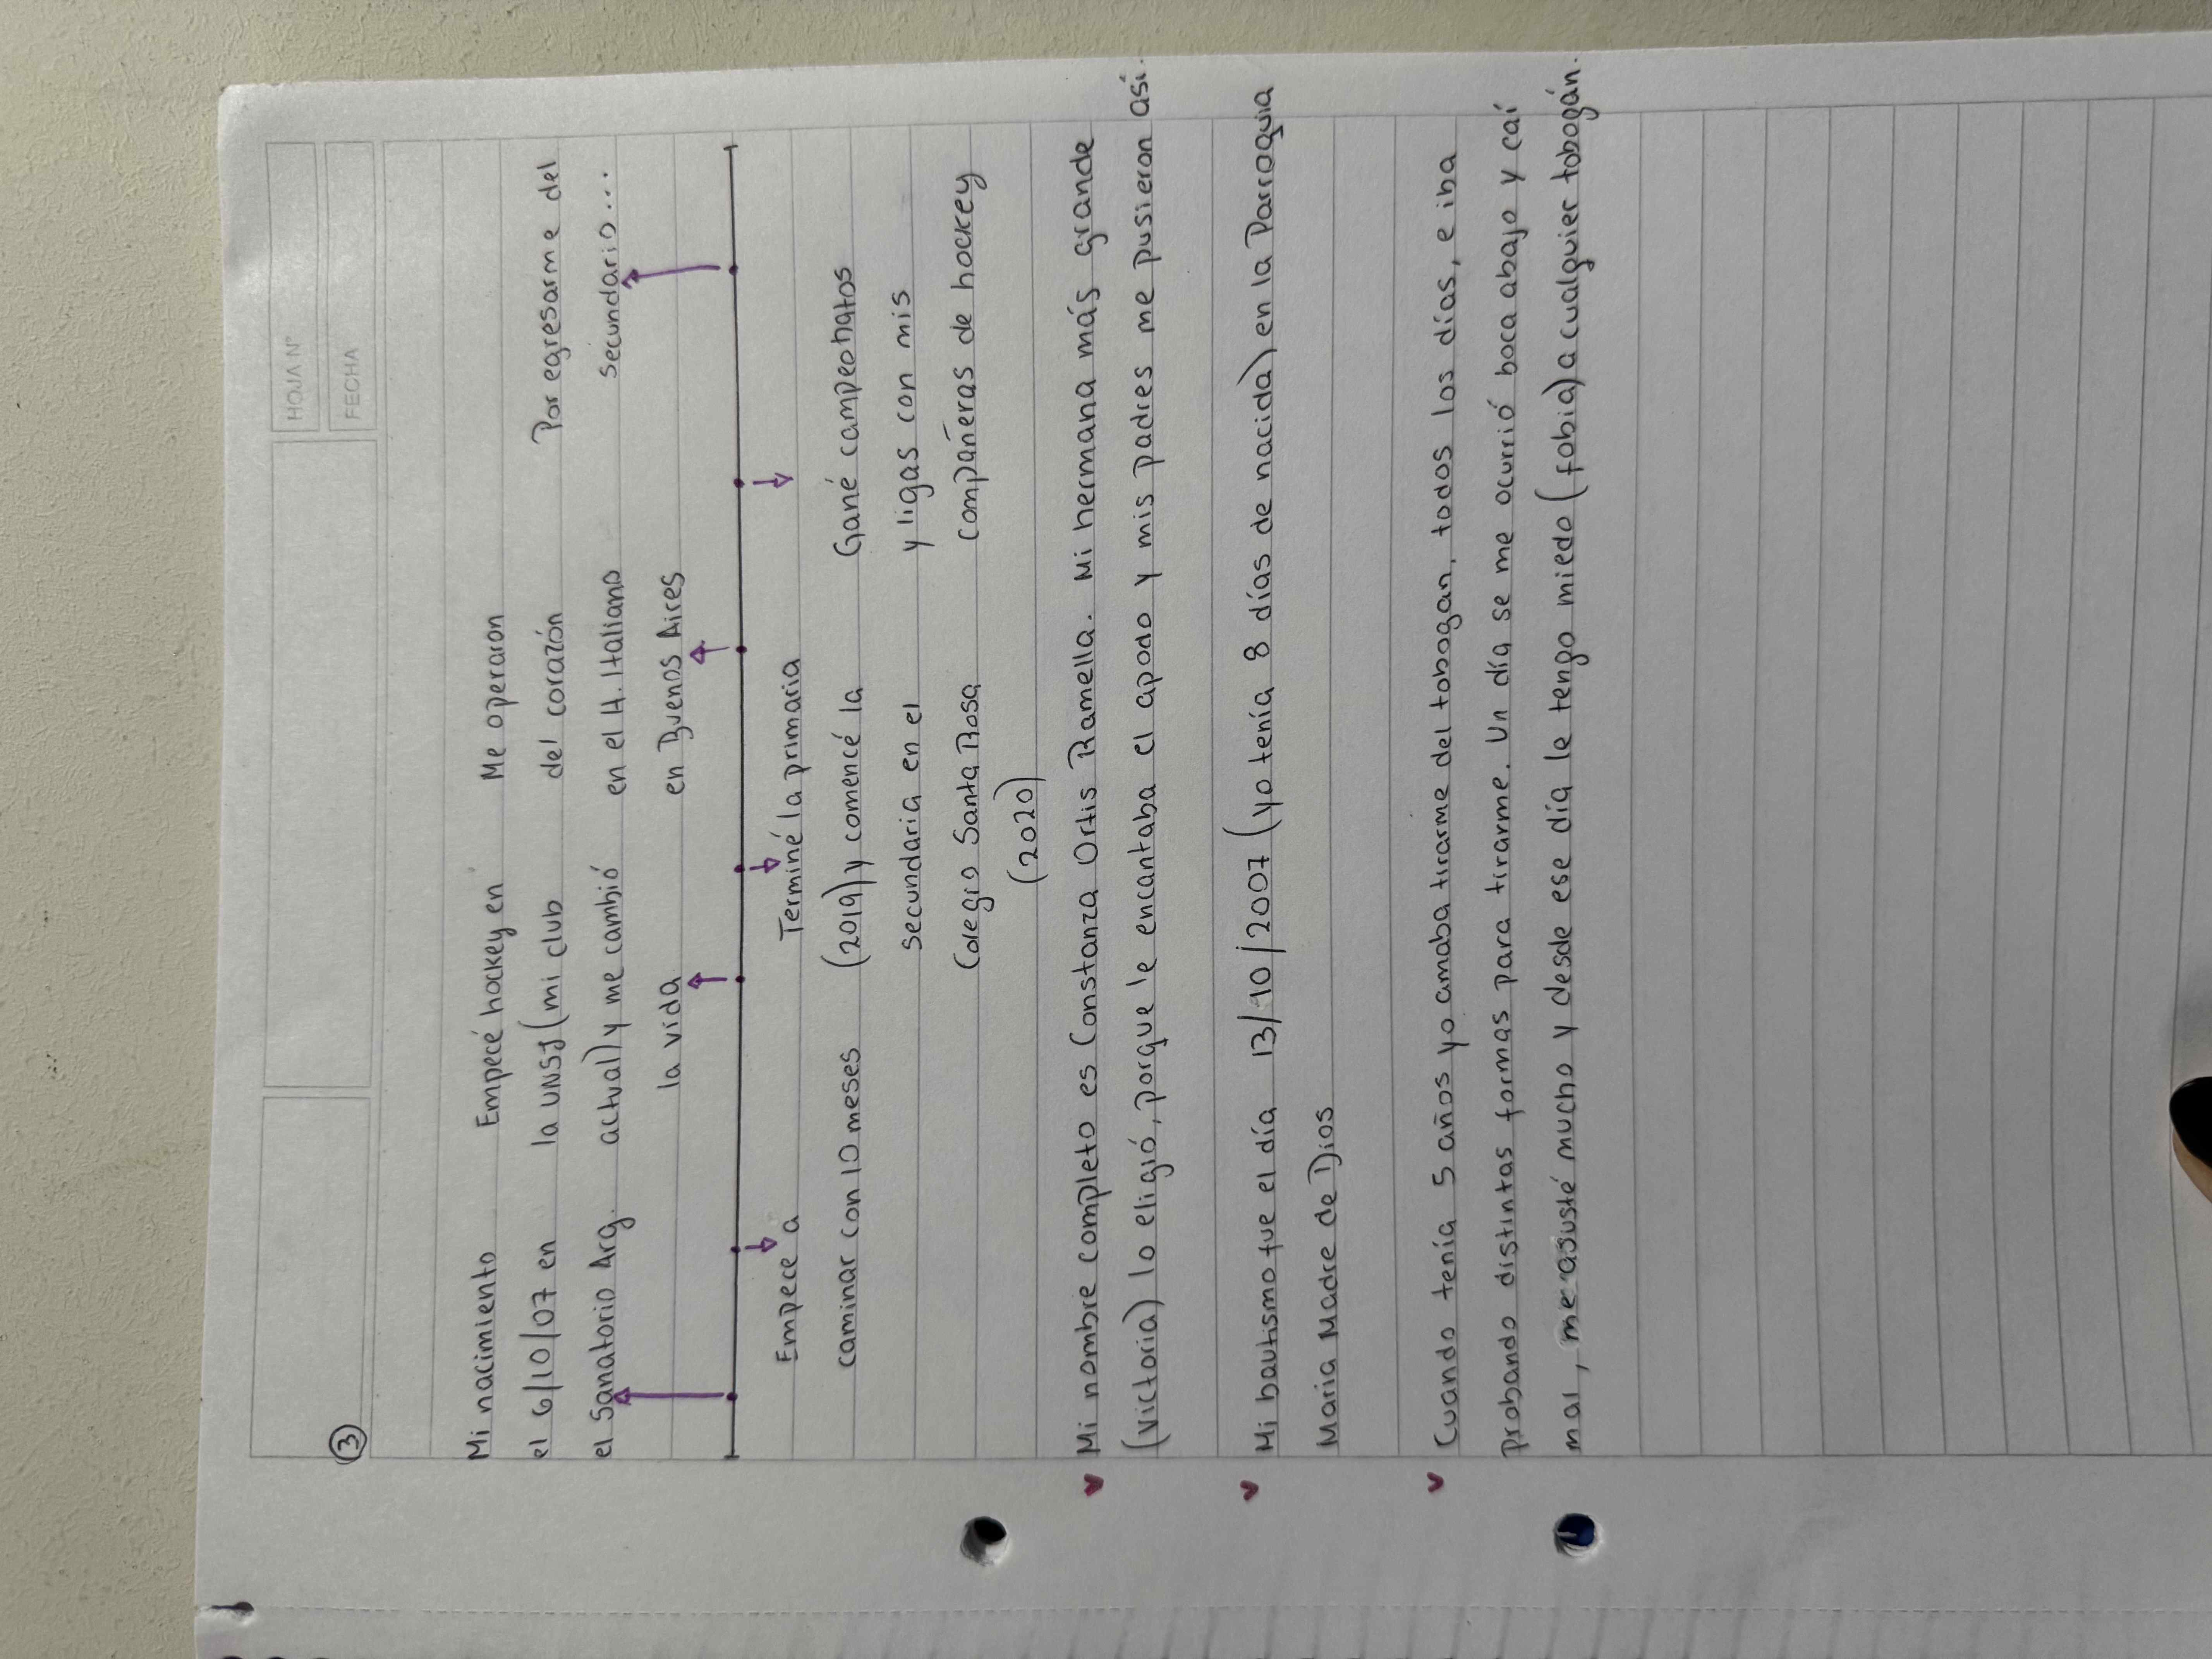 HOJA Nº
FECHA
3
Mi nacimiento
el 6/10/07 en
el Sanatorio Arg.
Empecé hockey en
la UNSJ (mi club
actual) y me cambió
la vida
Me operaron
del corazón
en el H. Italiano
en Buenos Aires
Por egresarme del
secundario...
Empece a
caminar con 10 meses
Terminé la primaria
(2019) y comencé la
secundaria en el
Colegio Santa Rosa
(2020)
Gané campeonatos
y ligas con mis
compañeras de hockey
Mi nombre completo es Constanza Ortis Ramella. Mi hermana más grande
(Victoria) lo eligió, porque le encantaba el apodo y mis padres me pusieron así.
Mi bautismo fue el día 13/10/2007 (yo tenía 8 días de nacida) en la Parroquia
Maria Madre de Dios
Cuando tenía 5 años yo amaba tirarme del tobogan, todos los días, e iba
probando distintas formas para tirarme. Un día se me ocurrió boca abajo y caí
mal, me asusté mucho y desde ese día le tengo miedo (fobia) a cualquier tobogán.